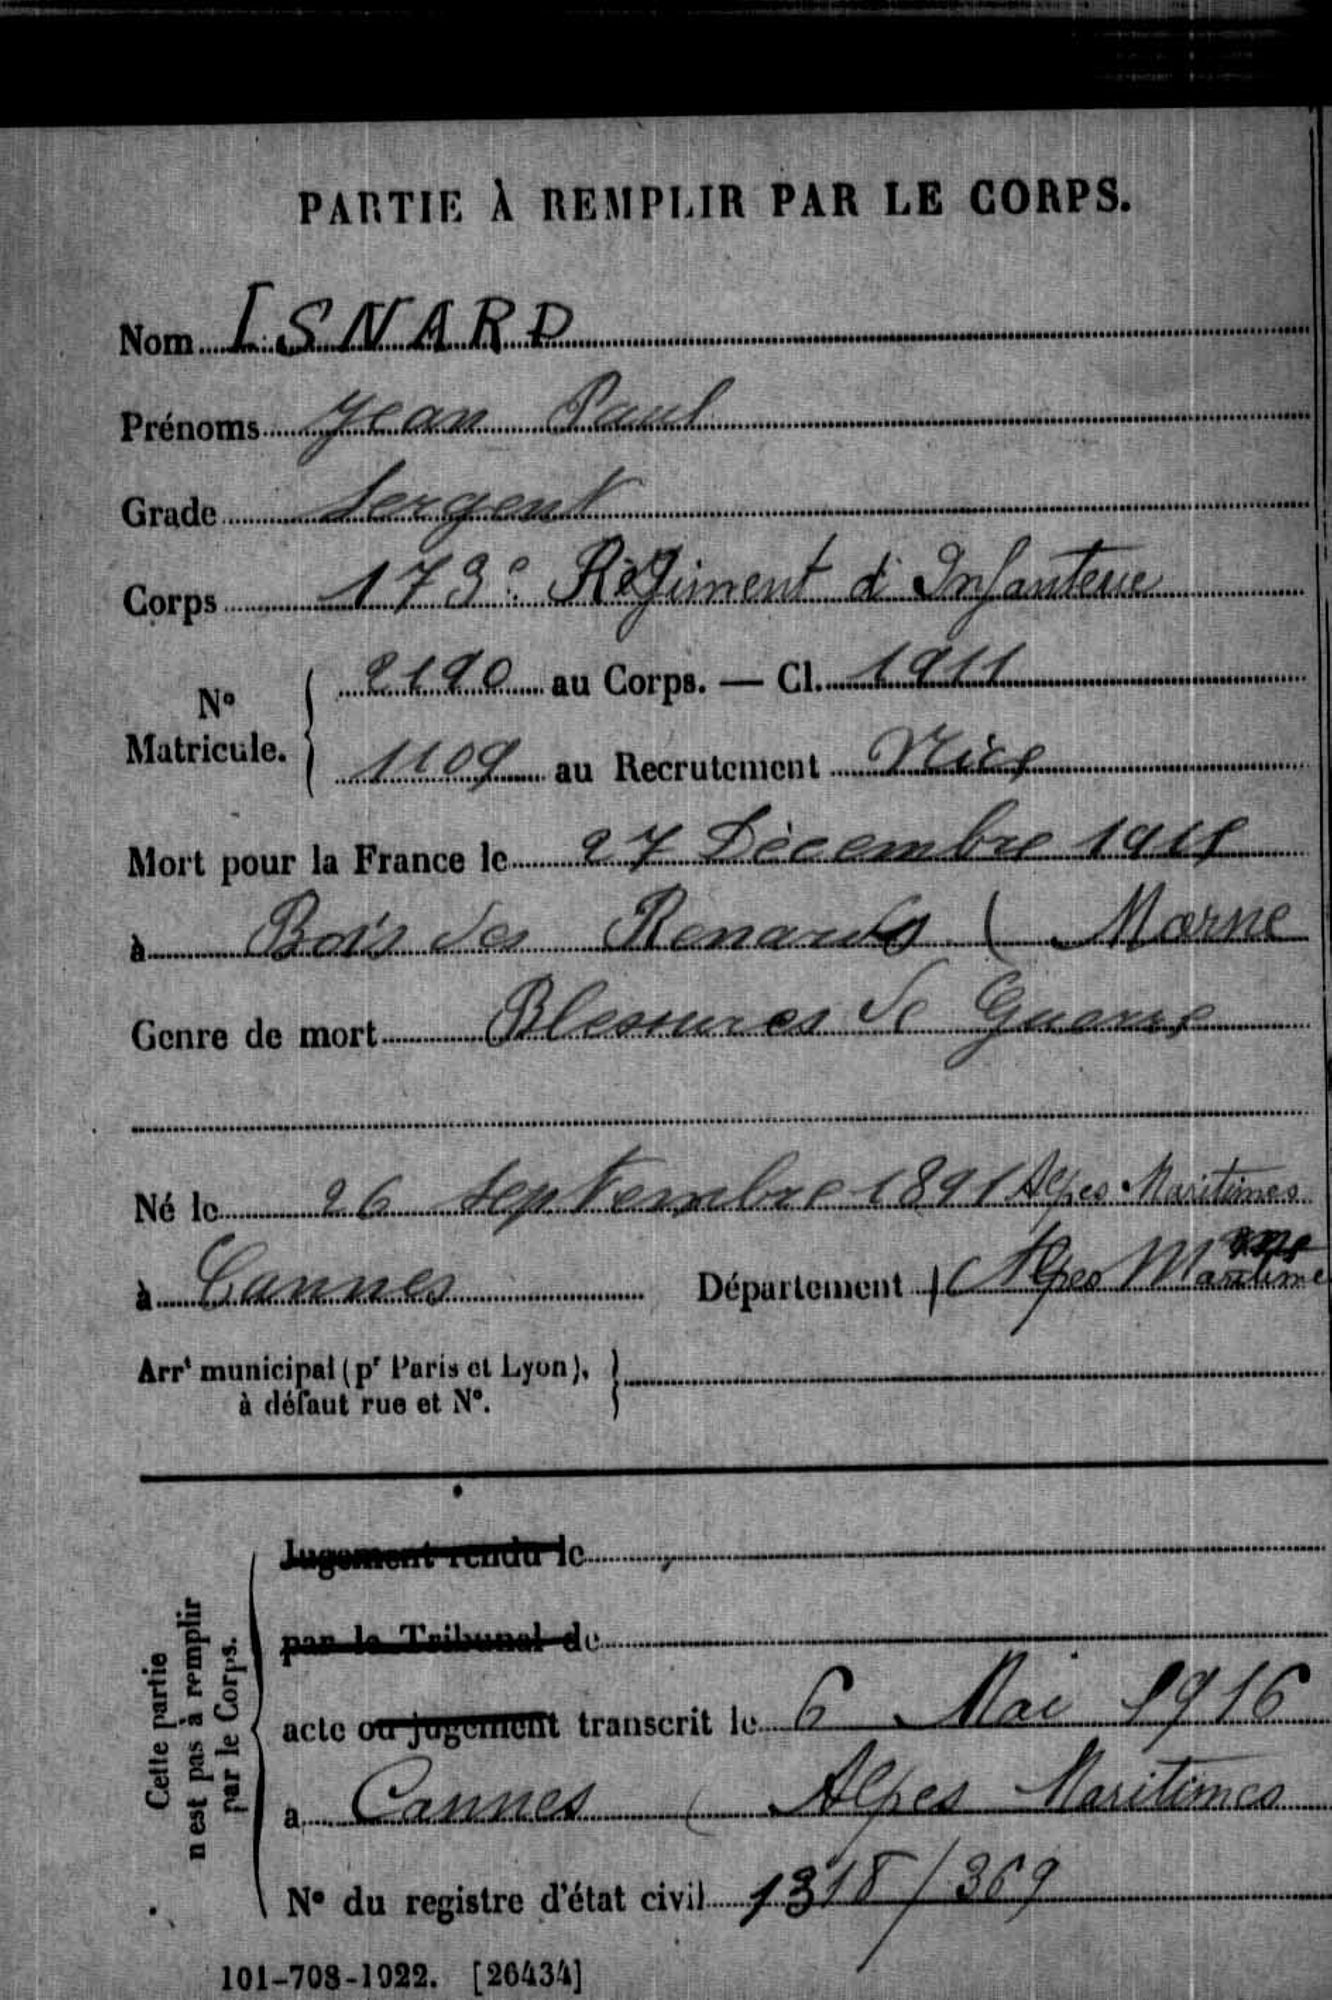 PARTIE À REMPLIR PAR LE CORPS.
Nom ISNARD
Prénoms Jean Paul
Grade Sergent
Corps 173e Régiment d'Infanterie
N° Matricule. 2190 au Corps. — Cl. 1911
1109 au Recrutement Nice
Mort pour la France le 27 Décembre 1915
à Bois des Renards ( Marne
Genre de mort Blessures de Guerre
Né le 26 Septembre 1891 Alpes Maritimes
à Cannes Département Alpes Maritime
Arrt municipal (pr Paris et Lyon), à défaut rue et N°.
Jugement rendu le
par le Tribunal de
acte ou jugement transcrit le 6 Mai 1916
à Cannes ( Alpes Maritimes
N° du registre d'état civil 1318/369
Cette partie n'est pas à remplir par le Corps.
101-708-1922. [26434]